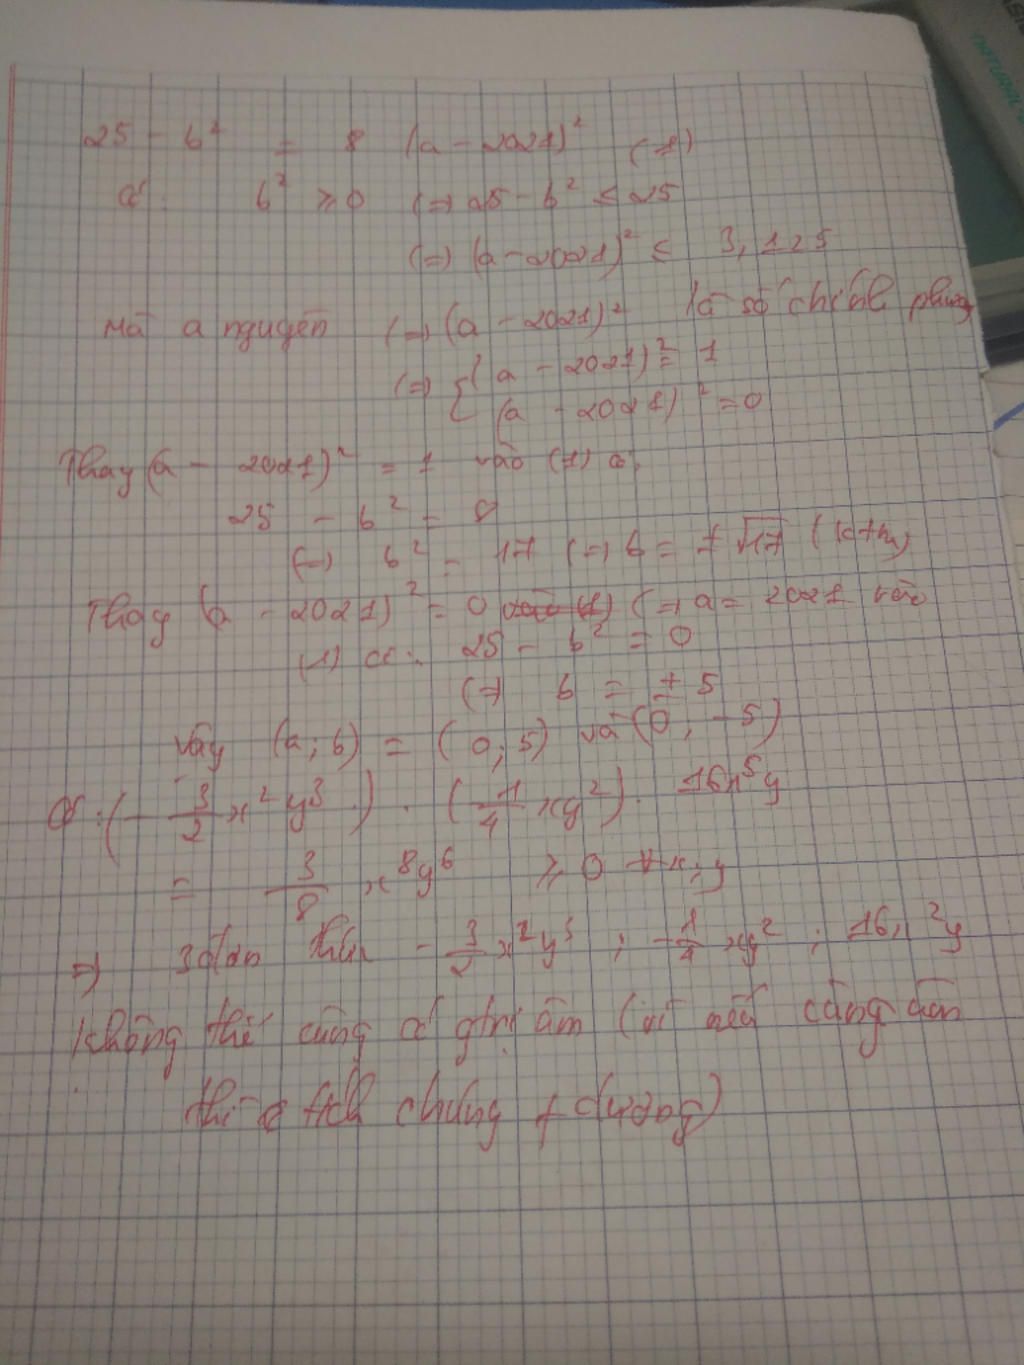 25 - b² = 8 (a - 2021)² (1)
Có: b² ≥ 0 (=) 25 - b² ≤ 25
(=) (a - 2021)² ≤ 3,125
Mà a nguyên (=) (a - 2021)² là số chính phương
(=) { (a - 2021)² = 1
(a - 2021)² = 0
Thay (a - 2021)² = 1 vào (1) có:
25 - b² = 8
(=) b² = 17 (=) b = ±√17 (ktm)
Thay (a - 2021)² = 0 (=) a = 2021 vào
(1) có: 25 - b² = 0
(=) b = ± 5
Vậy (a; b) = (0; 5) và (0; -5)
Có: (-3/2 x² y³) . (-1/4 xy²) . 16x⁵y
= 3/8 x⁸y⁶ ≥ 0 ∀ x; y
=) 3 đơn thức -3/2 x²y³ ; -1/4 xy² ; 16x²y
không thể cùng có gtrị âm (vì nếu cùng âm
thì tích chúng ≠ dương)